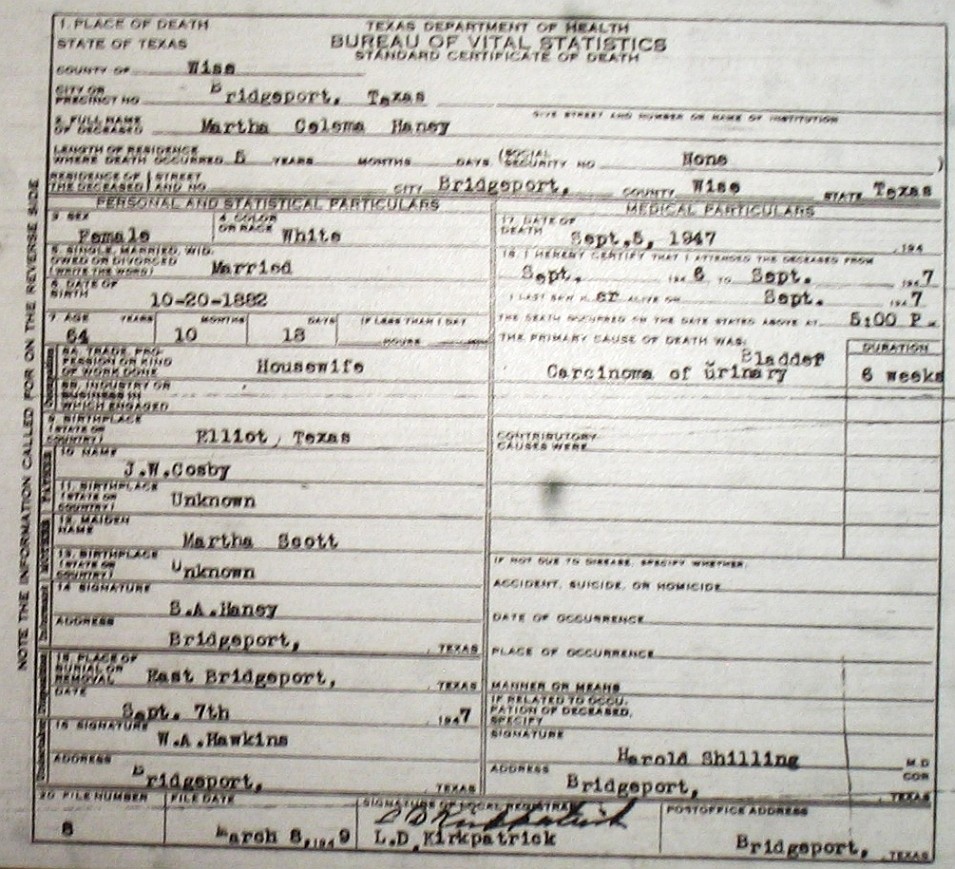 1. PLACE OF DEATH
STATE OF TEXAS
TEXAS DEPARTMENT OF HEALTH
BUREAU OF VITAL STATISTICS
STANDARD CERTIFICATE OF DEATH
COUNTY OF Wise
CITY OR PRECINCT NO. Bridgeport, Texas
GIVE STREET AND NUMBER OR NAME OF INSTITUTION
2. FULL NAME OF DECEASED Martha Celema Haney
LENGTH OF RESIDENCE WHERE DEATH OCCURRED 5 YEARS MONTHS DAYS (SOCIAL SECURITY NO. None )
RESIDENCE OF THE DECEASED STREET AND NO. CITY Bridgeport, COUNTY Wise STATE Texas
PERSONAL AND STATISTICAL PARTICULARS
3. SEX Female
4. COLOR OR RACE White
5. SINGLE, MARRIED, WIDOWED OR DIVORCED (WRITE THE WORD) Married
6. DATE OF BIRTH 10-20-1882
7. AGE YEARS MONTHS DAYS IF LESS THAN 1 DAY
64 10 13 HOURS MIN
8A. TRADE, PROFESSION OR KIND OF WORK DONE Housewife
8B. INDUSTRY OR BUSINESS IN WHICH ENGAGED
9. BIRTHPLACE (STATE OR COUNTRY) Elliot, Texas
FATHER
10 NAME J.W.Cosby
11. BIRTHPLACE (STATE OR COUNTRY) Unknown
MOTHER
12. MAIDEN NAME Martha Scott
13. BIRTHPLACE (STATE OR COUNTRY) Unknown
Informant
14 SIGNATURE S.A.Haney
ADDRESS Bridgeport, , TEXAS
15. PLACE OF BURIAL OR REMOVAL East Bridgeport, , TEXAS
DATE Sept. 7th 1947
16 SIGNATURE W.A.Hawkins
ADDRESS Bridgeport, , TEXAS
MEDICAL PARTICULARS
17. DATE OF DEATH Sept.5, 1947 , 194
18. I HEREBY CERTIFY THAT I ATTENDED THE DECEASED FROM
Sept. 194 6 TO Sept. 194 7
I LAST SAW H er ALIVE ON Sept. 194 7
THE DEATH OCCURRED ON THE DATE STATED ABOVE AT 5:00 P M
THE PRIMARY CAUSE OF DEATH WAS: DURATION
Bladder
Carcinoma of urinary 6 weeks
CONTRIBUTORY CAUSES WERE
IF NOT DUE TO DISEASE, SPECIFY WHETHER:
ACCIDENT, SUICIDE, OR HOMICIDE
DATE OF OCCURRENCE
PLACE OF OCCURRENCE
MANNER OR MEANS
IF RELATED TO OCCUPATION OF DECEASED, SPECIFY
SIGNATURE Harold Shilling M D
ADDRESS Bridgeport, COR , TEXAS
20 FILE NUMBER 8
FILE DATE March 8, 194 9
SIGNATURE OF LOCAL REGISTRAR
L D Kirkpatrick
L.D.Kirkpatrick
POSTOFFICE ADDRESS
Bridgeport, , TEXAS
NOTE THE INFORMATION CALLED FOR ON THE REVERSE SIDE